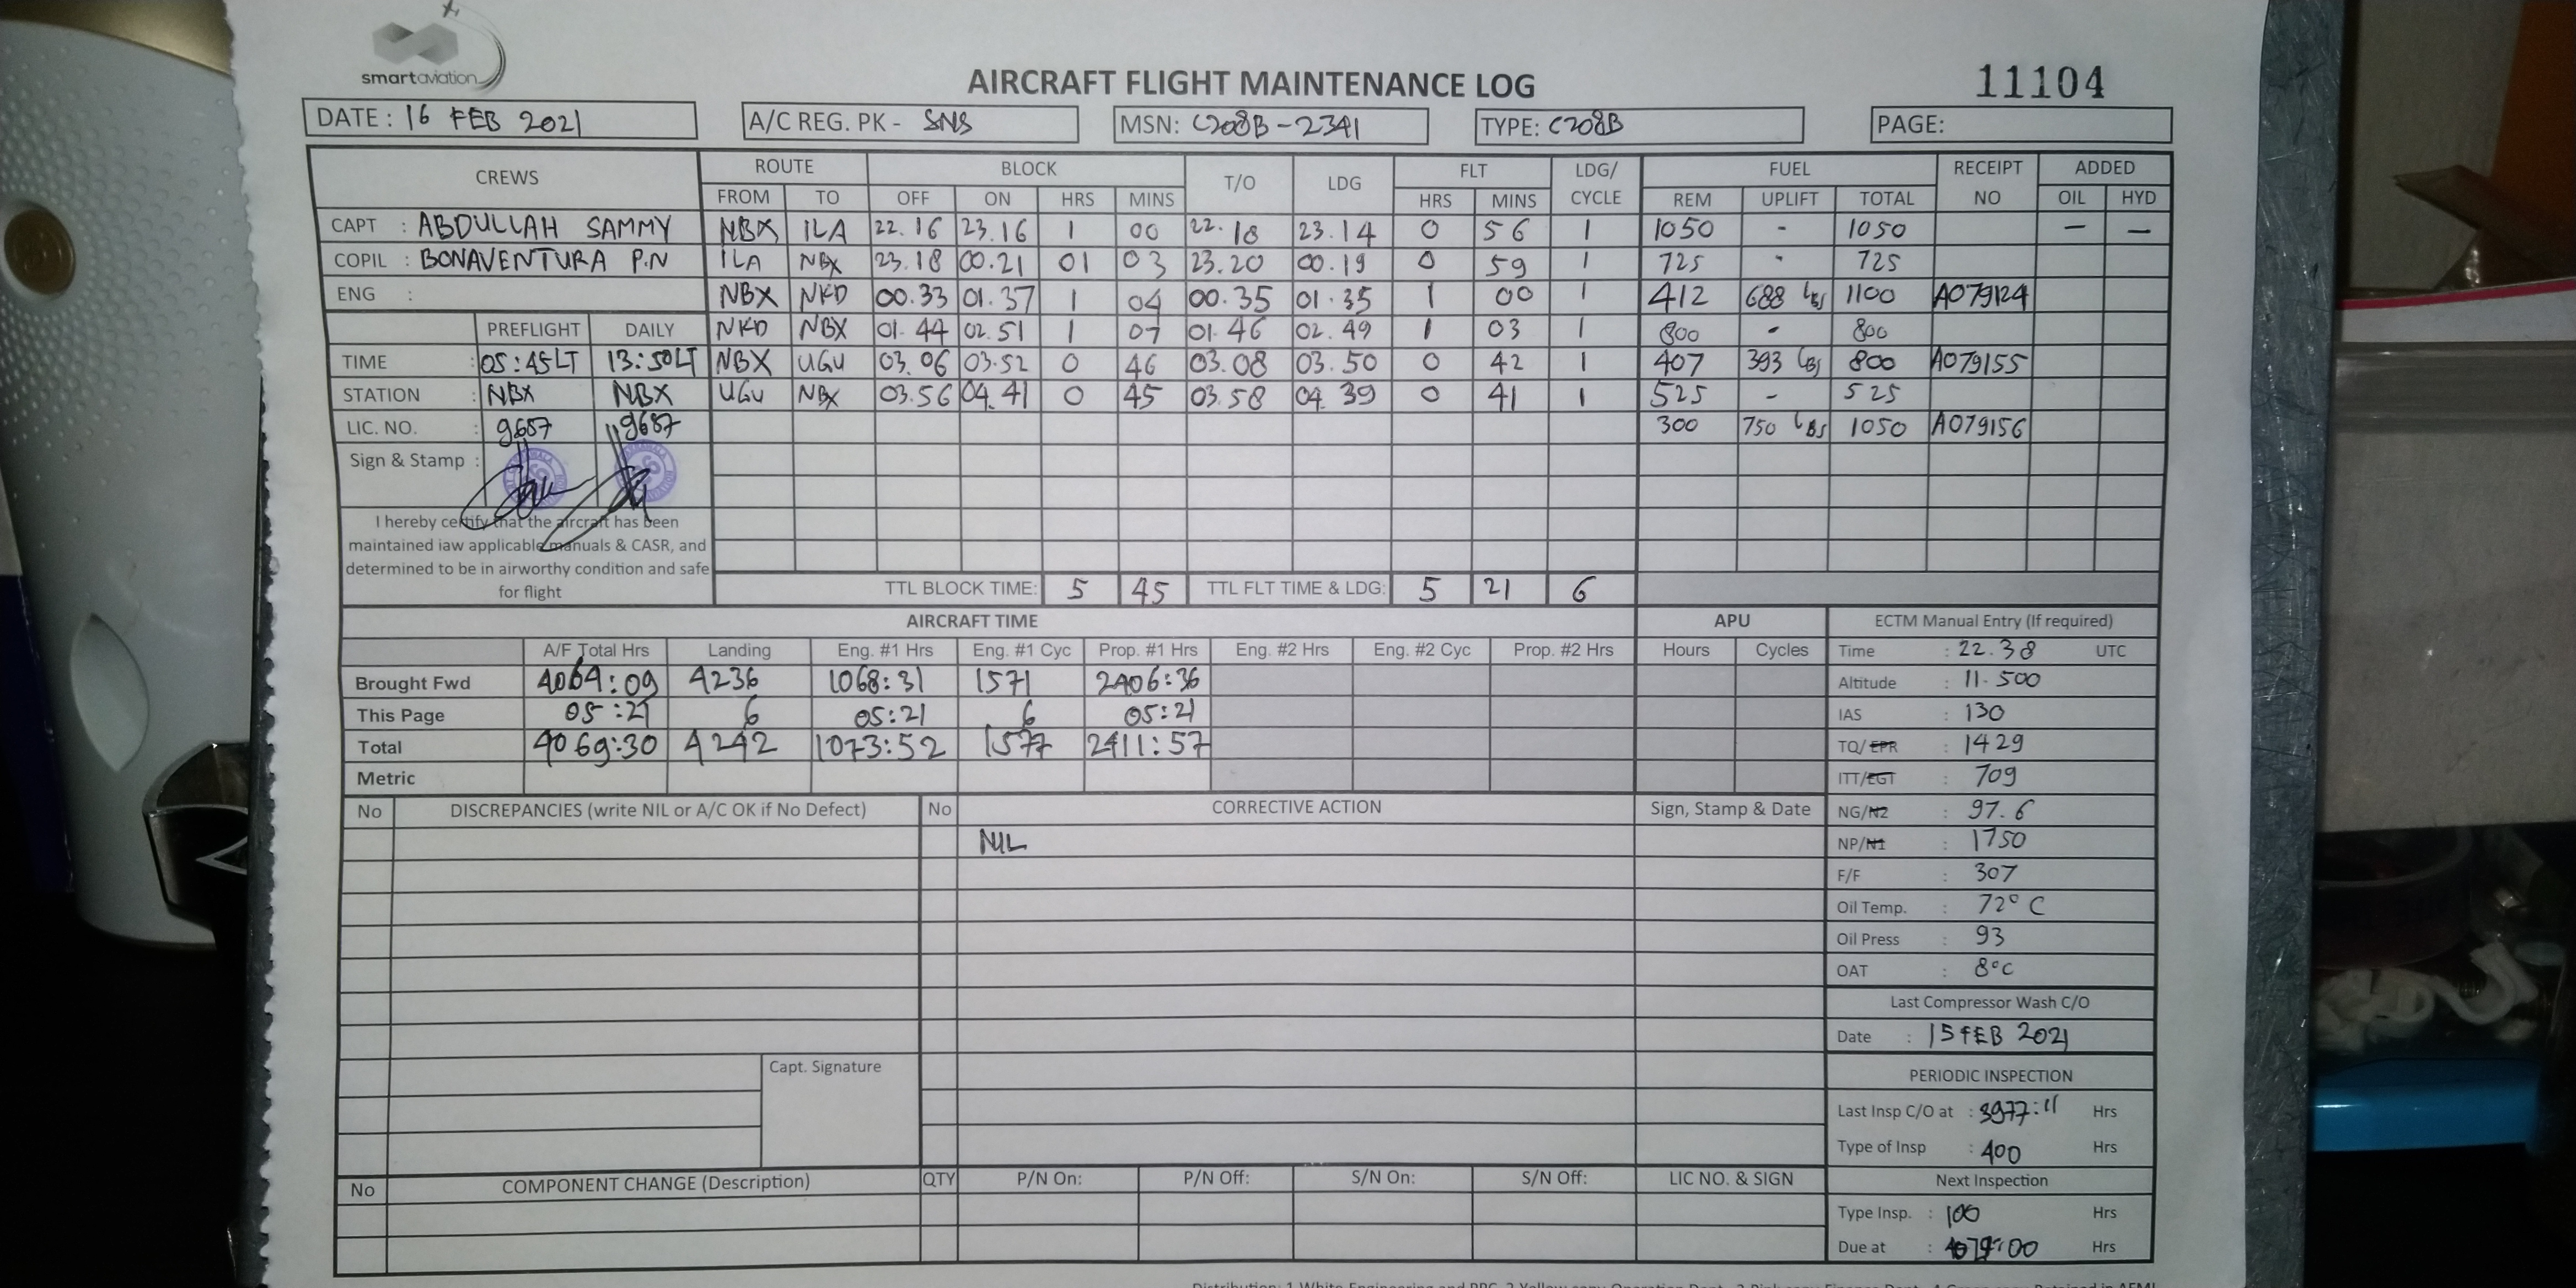 smartaviation
AIRCRAFT FLIGHT MAINTENANCE LOG
11104
DATE : 16 FEB 2021
A/C REG. PK - SNS
MSN: C208B-2341
TYPE: C208B
PAGE:
CREWS ROUTE BLOCK T/O LDG FLT LDG/ CYCLE FUEL RECEIPT NO ADDED
FROM TO OFF ON HRS MINS HRS MINS REM UPLIFT TOTAL OIL HYD
CAPT : ABDULLAH SAMMY NBX ILA 22.16 23.16 1 00 22.18 23.14 0 56 1 1050 - 1050 — —
COPIL : BONAVENTURA P.N ILA NBX 23.18 00.21 01 03 23.20 00.19 0 59 1 725 - 725
ENG : NBX NKD 00.33 01.37 1 04 00.35 01.35 1 00 1 412 688 LBS 1100 A079124
PREFLIGHT DAILY NKD NBX 01.44 02.51 1 07 01.46 02.49 1 03 1 800 - 800
TIME : 05:45LT 13:50LT NBX UGU 03.06 03.52 0 46 03.08 03.50 0 42 1 407 393 LBS 800 A079155
STATION : NBX NBX UGU NBX 03.56 04.41 0 45 03.58 04.39 0 41 1 525 - 525
LIC. NO. : 9687 9687 300 750 LBS 1050 A079156
Sign & Stamp :
I hereby certify that the aircraft has been
maintained iaw applicable manuals & CASR, and
determined to be in airworthy condition and safe
for flight
TTL BLOCK TIME: 5 45 TTL FLT TIME & LDG: 5 21 6
AIRCRAFT TIME APU ECTM Manual Entry (If required)
A/F Total Hrs Landing Eng. #1 Hrs Eng. #1 Cyc Prop. #1 Hrs Eng. #2 Hrs Eng. #2 Cyc Prop. #2 Hrs Hours Cycles Time : 22.38 UTC
Brought Fwd 4064:09 4236 1068:31 1571 2406:36 Altitude : 11.500
This Page 05:21 6 05:21 6 05:21 IAS : 130
Total 4069:30 4242 1073:52 1577 2411:57 TQ/EPR : 1429
Metric ITT/EGT : 709
No DISCREPANCIES (write NIL or A/C OK if No Defect) No CORRECTIVE ACTION Sign, Stamp & Date NG/N2 : 97.6
NIL NP/N1 : 1750
F/F : 307
Oil Temp. : 72°C
Oil Press : 93
OAT : 8°C
Last Compressor Wash C/O
Date : 15 FEB 2021
Capt. Signature
PERIODIC INSPECTION
Last Insp C/O at : 3977:11 Hrs
Type of Insp : 400 Hrs
No COMPONENT CHANGE (Description) QTY P/N On: P/N Off: S/N On: S/N Off: LIC NO. & SIGN Next Inspection
Type Insp. : 100 Hrs
Due at : Hrs